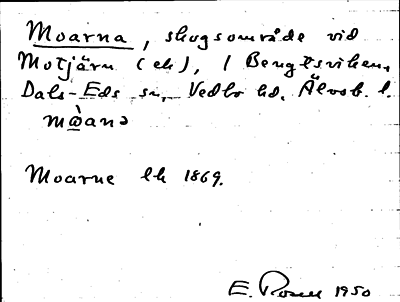 Moarna, skogsområde vid
Motjärn (ek), / Bengtsviken,
Dals-Eds sn, Vedbo hd, Älvsb. l.
mɷ̀anə
Moarne lk 1869.
E. Rosell 1950